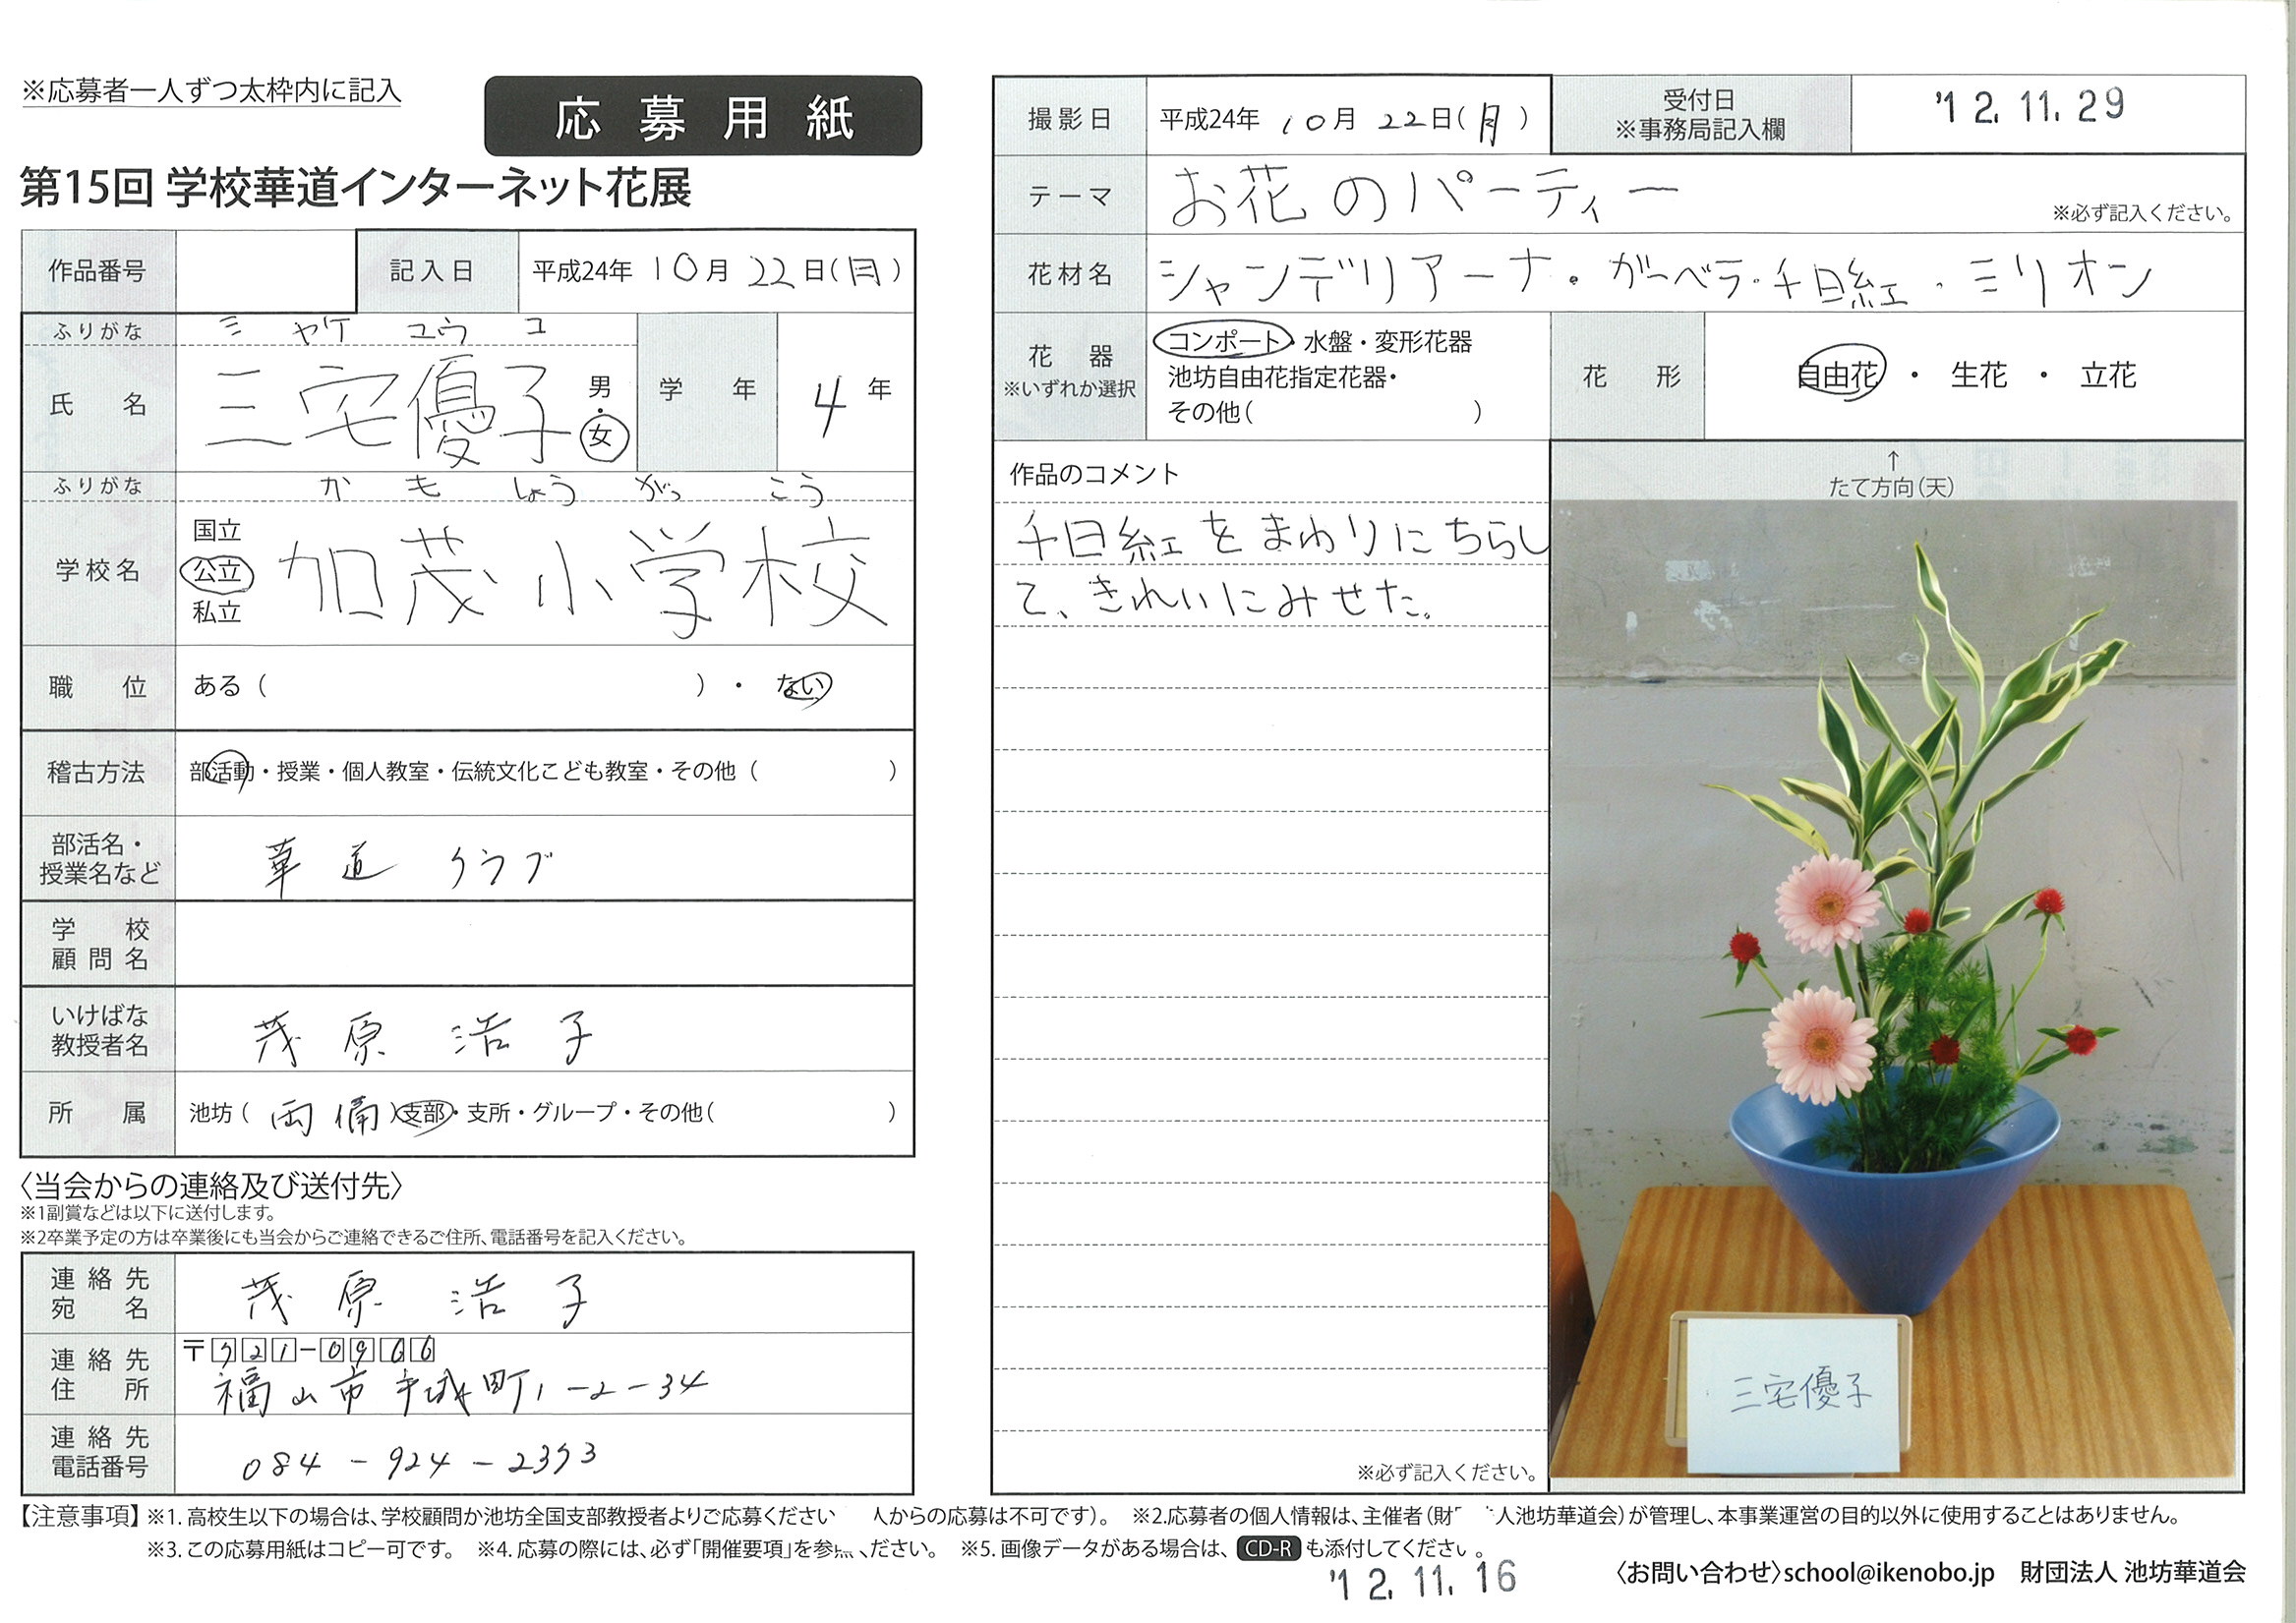 ※応募者一人ずつ太枠内に記入
応募用紙
第15回 学校華道インターネット花展
作品番号
記入日 平成24年 10月 22日(月)
ふりがな ミヤケ ユウコ
氏名 三宅優子 男・女
学年 4年
ふりがな かもしょうがっこう
学校名 国立 公立 私立 加茂小学校
職位 ある( )・ない
稽古方法 部活動・授業・個人教室・伝統文化こども教室・その他( )
部活名・授業名など 華道クラブ
学校顧問名
いけばな教授者名 茂原浩子
所属 池坊(両備)支部・支所・グループ・その他( )
〈当会からの連絡及び送付先〉
※1副賞などは以下に送付します。
※2卒業予定の方は卒業後にも当会からご連絡できるご住所、電話番号を記入ください。
連絡先宛名 茂原浩子
連絡先住所 〒721-0966
福山市手城町1-2-34
連絡先電話番号 084-924-2393
撮影日 平成24年 10月 22日(月)
受付日 ※事務局記入欄 '12.11.29
テーマ お花のパーティー ※必ず記入ください。
花材名 シャンデリアーナ・ガーベラ・千日紅・ミリオン
花器 ※いずれか選択 コンポート・水盤・変形花器
池坊自由花指定花器・
その他( )
花形 自由花・生花・立花
作品のコメント
千日紅をまわりにちらし
て、きれいにみせた。
※必ず記入ください。
↑
たて方向(天)
三宅優子
【注意事項】※1.高校生以下の場合は、学校顧問か池坊全国支部教授者よりご応募ください 人からの応募は不可です)。 ※2.応募者の個人情報は、主催者(財 人池坊華道会)が管理し、本事業運営の目的以外に使用することはありません。
※3.この応募用紙はコピー可です。 ※4.応募の際には、必ず「開催要項」を参 ください。 ※5.画像データがある場合は、CD-Rも添付してください。
'12.11.16
〈お問い合わせ〉school@ikenobo.jp 財団法人 池坊華道会